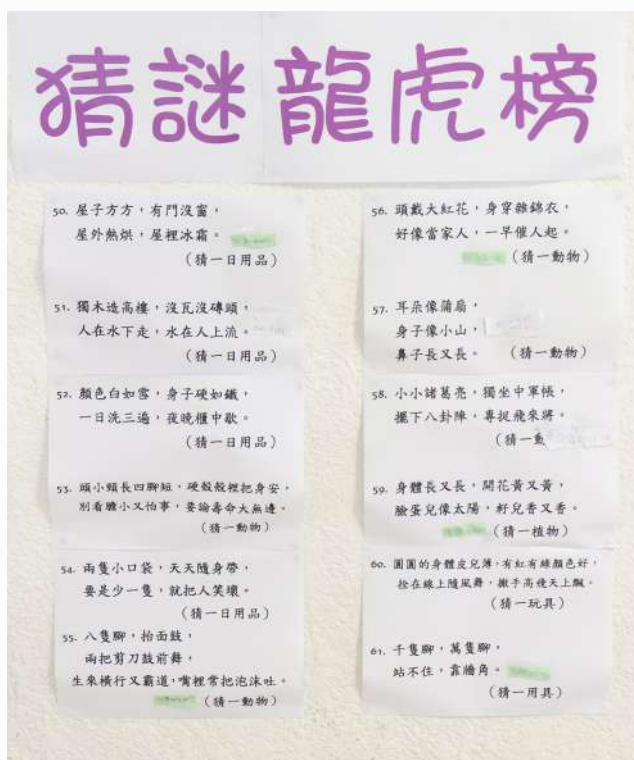 猜謎龍虎榜
50. 屋子方方，有門沒窗，
屋外熱烘，屋裡冰霜。
(猜一日用品)
51. 獨木造高樓，沒瓦沒磚頭，
人在水下走，水在人上流。
(猜一日用品)
52. 顏色白如雪，身子硬如鐵，
一日洗三遍，夜晚櫃中歇。
(猜一日用品)
53. 頭小頸長四腳短，硬殼殼裡把身安，
別看膽小又怕事，要論壽命大無邊。
(猜一動物)
54. 兩隻小口袋，天天隨身帶，
要是少一隻，就把人笑壞。
(猜一日用品)
55. 八隻腳，抬面鼓，
兩把剪刀鼓前舞，
生來橫行又霸道，嘴裡常把泡沫吐。
(猜一動物)
56. 頭戴大紅花，身穿雜錦衣，
好像當家人，一早催人起。
(猜一動物)
57. 耳朵像蒲扇，
身子像小山，
鼻子長又長。 (猜一動物)
58. 小小諸葛亮，獨坐中軍帳，
擺下八卦陣，專捉飛來將。
(猜一
59. 身體長又長，開花黃又黃，
臉蛋兒像太陽，籽兒香又香。
(猜一植物)
60. 圓圓的身體皮兒薄，有紅有綠顏色好，
拴在線上隨風舞，撒手高飛天上飄。
(猜一玩具)
61. 千隻腳，萬隻腳，
站不住，靠牆角。
(猜一用具)